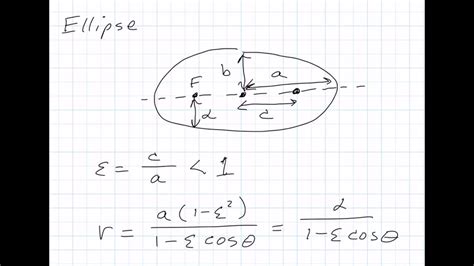 Ellipse
b a
F
α c
ε = c/a < 1
r = a(1-ε²)/(1-ε cosθ) = α/(1-ε cosθ)